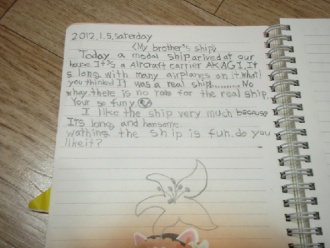 2012.1.5, Saterday
<My brother's ship>
Today a medal ship arived at our
hape. It's a Aircraft carrier AKAGI. It
is long with many airplanes on it. what!
you thinked it was a real ship......... No
way there is no room for the real ship.
Your so funy.
I like the ship very much because
Its long and hansome.
wathing the ship is fun. do you
like it?